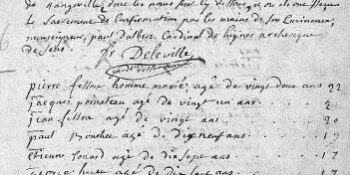 de Rangeville dont les noms sont cy dessous ou ont reçu
le Sacrement de Confirmation par les mains de Son Eminence
monseigneur, paul dalbert Cardinal de luynes archeveque
de Sens.
Deleville
pierre fellon homme marié, agé de vingt deux ans 22
jacques poinsteau agé de vingt un ans . . . 21
jean fellon agé de vingt ans . . . 20
paul Boucher agé de dixneuf ans . . 19
etienne Conard agé de dix sept ans . . . 17
agé de dix sept ans . . 17